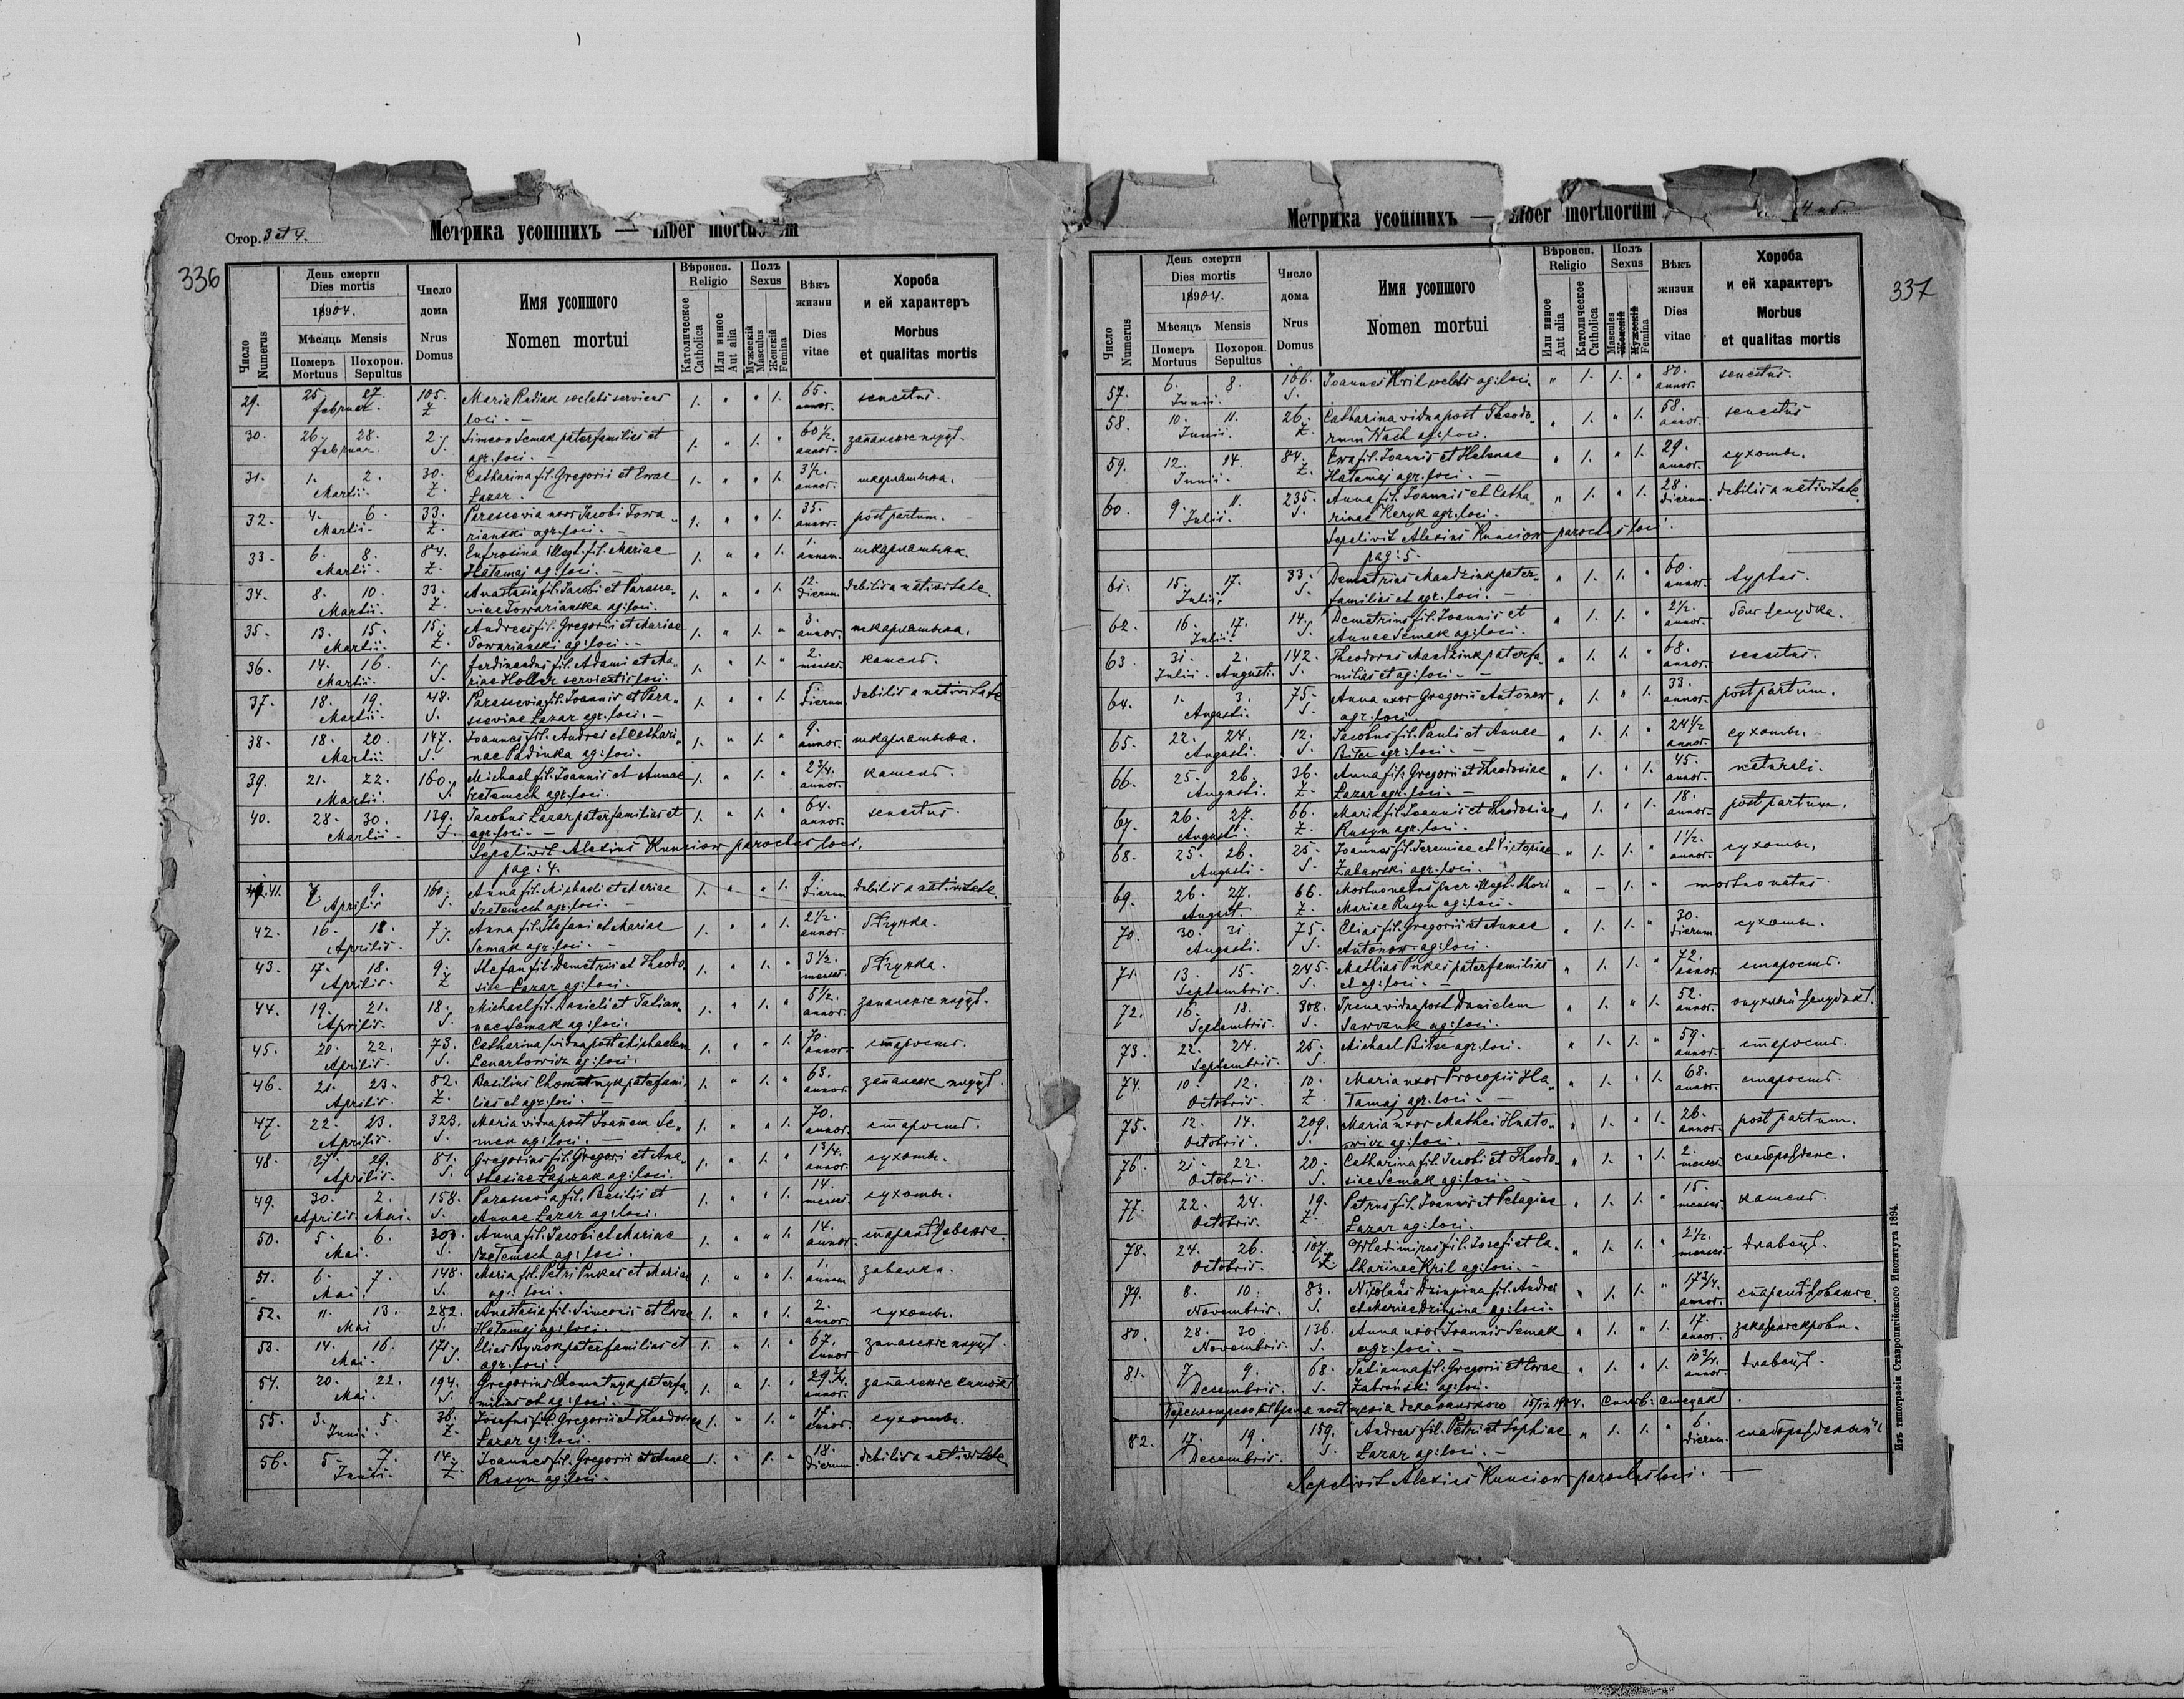 336
Стор. 3 et 4.
Метрика усопшихъ — Liber mortuorum
Число Numerus
День смерти
Dies mortis
1904.
Мѣсяць Mensis
Померъ Mortuus
Похорон. Sepultus
Число дома
Nrus Domus
Имя усопшого
Nomen mortui
Вѣроисп. Religio
Католическое Catholica
Или инное Aut alia
Полъ Sexus
Мужескій Masculus
Женскій Femina
Вѣкъ жизни
Dies vitae
Хороба и ей характеръ
Morbus et qualitas mortis
29. 25. 27. februar. 105. Z Maria Rudiak coelebs serviens loci. — 1. " " 1. 65. annor. senectus.
30. 26. 28. februar. 2. S. Simeon Semak paterfamilias et agr. loci. — 1. " 1. " 60 1/2. annor.
31. 1. 2. Martii. 30. Z. Catharina fil. Gregorii et Evae Lazar. 1. " " 1. 3 1/2. annor. шкарлатына.
32. 4. 6. Martii. 33. Z. Parascevia uxor Jacobi Towarianski agr. loci. 1. " " 1. 35. annor. post partum.
33. 6. 8. Martii. 84. Z. Eufrosina illegt. fil. Mariae Hatamaj ag. loci. — 1. " " 1. 1. annum. шкарлатына.
34. 8. 10. Martii. 33. Z. Anastasia fil. Jacobi et Parasceviae Towarianska ag. loci. 1. " " 1. 12. dierum debilis a nativitate.
35. 13. 15. Martii. 15. Z. Andreas fil. Gregorii et Mariae Towarianski ag. loci. — 1. " 1. " 3. annor. шкарлатына.
36. 14. 16. Martii. 1. S. Ferdinandus fil. Adami et Mariae Holler servientis loci. 1. " 1. " 2. menses. кашель.
37. 18. 19. Martii. 48. S. Parascevia fil. Joannis et Parasceviae Lazar agr. loci. — 1. " " 1. dierum debilis a nativitate
38. 18. 20. Martii. 147. S. Joannes fil. Andrei et Catharinae Padinka ag. loci. 1. " 1. " 9. annor. шкарлатына.
39. 21. 22. Martii. 160. S. Michael fil. Joannis et Annae Szetemech agr. loci. 1. " 1. " 2 3/4. annor. кашель.
40. 28. 30. Martii. 139. S. Jacobus Lazar paterfamilias et agr. loci. — 1. " 1. " 64. annor. senectus.
Sepelivit Alexius Kunciow parochus loci.
pag: 4.
41. 7. 9. Aprilis 160. S. Anna fil. Michaeli et Mariae Szetemech agr. loci. — 1. " " 1. 9. dierum debilis a nativitate.
42. 16. 18. Aprilis. 7. S. Anna fil. Stefani et Mariae Semak agr. loci. — 1. " " 1. 2 1/2. annor. бѣгунка.
43. 17. 18. Aprilis. 9. Z Stefan fil. Demetrii et Theodosiae Lazar ag. loci. 1. " 1. " 3 1/2. menses. бѣгунка.
44. 19. 21. Aprilis. 18. S. Michael fil. Danieli et Tatiannae Semak ag. loci. 1. " 1. " 5 1/2. annor.
45. 20. 22. Aprilis. 73. S. Catharina vidua post Michaelem Lenartowicz ag. loci. 1. " " 1. 70. annor. старость.
46. 21. 23. Aprilis. 82. Z. Basilius Chomutnyk paterfamilias et agr. loci. — 1. " 1. " 63. annor.
47. 22. 23. Aprilis. 323. S. Maria vidua post Joannem Semen ag. loci. — 1. " " 1. 70. annor. старость.
48. 27. 29. Aprilis. 81. S. Gregorius fil. Gregori et Anastasiae ag. loci. 1. " 1. " 1 3/4. annor. сухоты.
49. 30. 2. Aprilis. Mai. 158. S. Parascevia fil. Basilii et Annae Lazar agr. loci. 1. " " 1. 14. menses. сухоты.
50. 5. 6. Mai. 303. S. Anna fil. Jacobi et Mariae Szetemech ag. loci. 1. " " 1. 14. annor.
51. 6. 7. Mai. 148. S. Maria fil. Petri Pukas et Mariae ag. loci. 1. " " 1. 1. annum завалка.
52. 11. 13. Mai 282. S. Anastasia fil. Simeonis et Evae Hatamaj ag. loci. 1. " " 1. 2. annor. сухоты.
53. 14. 16. Mai. 171. S. Elias Byrok paterfamilias et agr. loci. 1. " 1. " 67. annor
54. 20. 22. Mai. 194. S. Gregorius Chomutnyk paterfamilias et ag. loci. — 1. " 1. " annor.
55. 3. 5. Junii. 36. Z. Josefus fil. Gregorii et Theodosiae Lazar ag. loci. 1. " 1. " 17. annor. сухоты.
56. 5. 7. Junii. 14. Z. Joannes fil. Gregorii et Annae Rusyn ag. loci. — 1. " 1. " 18. dierum. debilis a nativitate
337
Метрика усопшихъ — Liber mortuorum
Число Numerus
День смерти
Dies mortis
1904.
Мѣсяць Mensis
Померъ Mortuus
Похорон. Sepultus
Число дома
Nrus Domus
Имя усопшого
Nomen mortui
Вѣроисп. Religio
Или инное Aut alia
Католическое Catholica
Полъ Sexus
Masculus Женскій
Мужескій Femina
Вѣкъ жизни
Dies vitae
Хороба и ей характеръ
Morbus et qualitas mortis
57. 6. 8. Junii. 166. S. Joannes Kril coelebs ag. loci. " 1. 1. " 80. annor. senectus.
58. 10. 11. Junii. 26. Z. Catharina vidua post Theodorum Wach ag. loci. " 1. " 1. 58. annor. senectus
59. 12. 14. Junii. 84. Z. Eva fil. Joannis et Helenae Hatamaj agr. loci. — " 1. " 1. 29. annor. сухоты.
60. 9. 11. Julii. 235. S. Anna fil. Joannis et Catharinae Keryk agr. loci. " 1. " 1. 28. dierum. debilis a nativitate.
Sepelivit Alexius Kunciow parochus loci.
pag: 5.
61. 15. 17. Julii. 33. S. Demetrius Mandziuk paterfamilias et agr. loci. — " 1. 1. " 60. annor. typhus.
62. 16. 17. Julii. 14. S. Demetrius fil. Joannis et Annae Semak ag. loci. " 1. 1. " 2 1/2. annor.
63. 31. 2. Julii. Augusti. 142. S. Theodorus Mandziuk paterfamilias et ag. loci. — " 1. 1. " 68. annor. senectus.
64. 1. 3. Augusti. 75. S. Anna uxor Gregorii Antonow agr. loci. " 1. " 1. 33. annor. post partum.
65. 22. 24. Augusti. 12. S. Jacobus fil. Pauli et Annae agr. loci. — " 1. 1. " 24 1/2 annor. сухоты.
66. 25. 26. Augusti. 36. Z. Anna fil. Gregorii et Theodosiae Lazar agr. loci. — " 1. " 1. 45. annor. naturali.
67. 26. 27. Augusti. 66. Z. Maria fil. Joannis et Theodosiae Rusyn agr. loci. " 1. " 1. 18. annor. post partum.
68. 25. 26. Augusti. 25. S. Joannes fil. Jeremiae et Victoriae Zabawski agr. loci. " 1. 1. " 1 1/2. annor. сухоты.
69. 26. 27. August. 66. Z. Mortuo natus puer illegt. thori Mariae Rusyn ag. loci. " — 1. " mortuo natus.
70. 30. 31. Augusti. 75. S. Elias fil. Gregorii et Annae Antonow ag. loci. " 1. 1. " 30. dierum сухоты.
71. 13. 15. Septembris. 245. S. Mathias Pukas paterfamilias et ag. loci. — " 1. 1. " 72. annor. старость.
72. 16. 18. Septembris. 308. S. Irena vidua post Danielem ag. loci. " 1. " 1. 52. annor.
73. 22. 24. Septembris. 25. S. Michael agr. loci. " 1. 1. " 59. annor. старость.
74. 10. 12. Octobris. 10. Z. Maria uxor Procopii Hatamaj agr. loci. — " 1. " 1. 68. annor. старость.
75. 12. 14. Octobris. 209. S. Maria uxor Mathei Hnatowicz ag. loci. — " 1. " 1. 26. annor. post partum.
76. 21. 22. Octobris. 20. S. Catharina fil. Jacobi et Theodosiae Semak ag. loci. — " 1. " 1. 2. menses.
77. 22. 24. Octobris. 19. Z. Petrus fil. Joannis et Pelagiae Lazar ag. loci. " 1. 1. " 15. menses. кашель.
78. 24. 26. Octobris. 107. Z. Wladimirus fil. Josefi et Catharinae Kril ag. loci. — " 1. 1. " 2 1/2. menses.
79. 8. 10. Novembris. 83. S. Nikolaus Dziupina fil. Andrei et Mariae Dziupina ag. loci. " 1. 1. " 17 3/4. annor.
80. 28. 30. Novembris. 136. S. Anna uxor Joannis Semak agr. loci. — " 1. " 1. 17. annor. закаженье крови.
81. 7. 9. Decembris. 68. S. Tatianna fil. Gregorii et Evae ag. loci. " 1. " 1. 10 3/4. annor.
деканьского 15/12 1904.
82. 17. 19. Decembris. 159. S. Andreas fil. Petri et Sophiae Lazar ag. loci. — " 1. 1. " 6. dierum.
Sepelivit Alexius Kunciow parochus loci. —
Изъ типографіи Ставропигійского Института 1894.